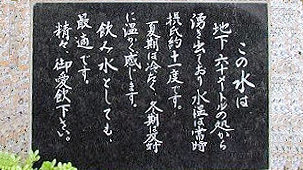 この水は
地下六十メートルの処から
湧き出ており水温は常時
摂氏約十一度です。
夏期は冷たく、冬期は反対
に温かく感じます。
飲み水としても、
最適です。
精々、御愛飲下さい。